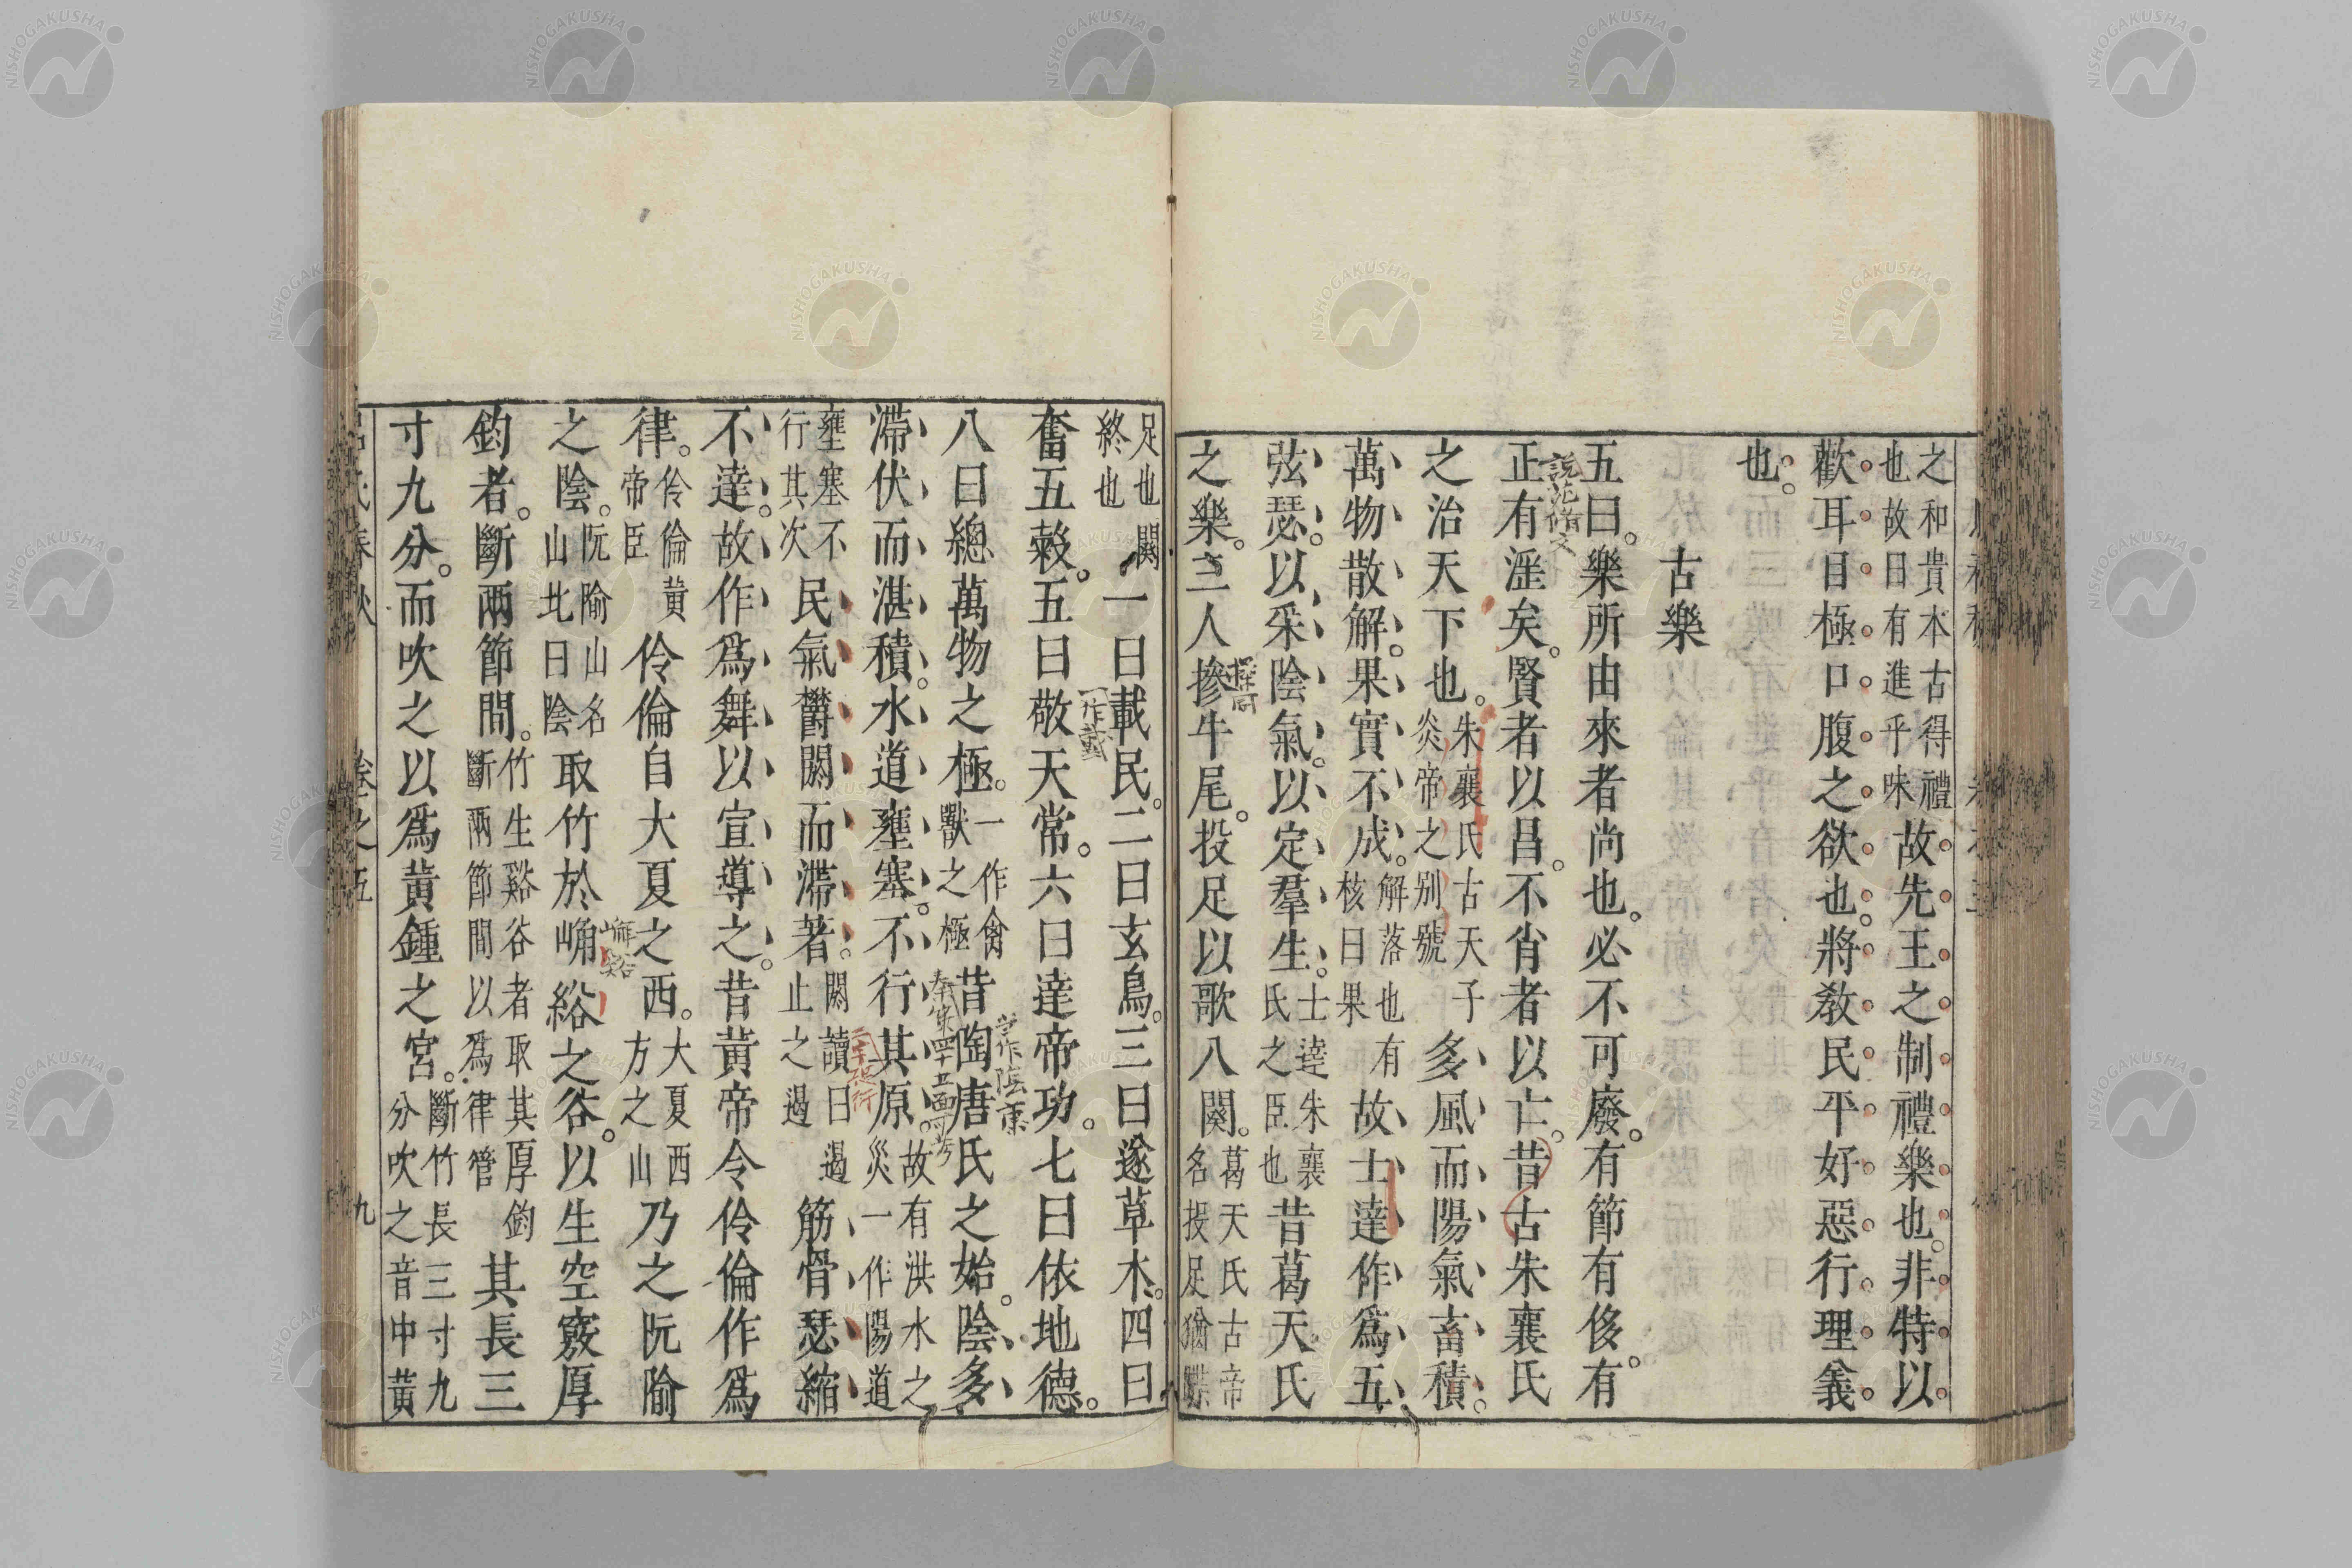 之和貴本古得禮
也故曰有進乎味
故先王之制禮樂也。非特以
歡耳目極口腹之欲也。將教民平好惡行理義
也。
古樂
五曰。樂所由來者尚也。必不可廢。有節有侈。有
說苑脩文
正有淫矣。賢者以昌。不肖者以亡。昔古朱襄氏
之治天下也。
朱襄氏古天子
炎帝之別號
多風而陽氣畜積。
萬物散解。果實不成。
解落也有
核曰果
故士達作爲五
弦瑟。以采陰氣。以定羣生。
士達朱襄
氏之臣也
昔葛天氏
之樂。三人摻牛尾。投足以歌八闋。
葛天氏古帝
名投足猶蹀
足也闋
終也
一曰載民。二曰玄鳥。三曰遂草木。四曰
一作
奮五穀。五曰敬天常。六曰達帝功。七曰依地德。
八曰總萬物之極。
一作禽
獸之極
昔陶唐氏之始。陰多。
滯伏而湛積。水道壅塞。不行其原。
故有洪水之
災一作陽道
壅塞不
行其次
民氣鬱閼而滯著。
閼讀曰遏
止之遏
筋骨瑟縮
不達。故作爲舞以宣導之。昔黃帝令伶倫作爲
律。
伶倫黃
帝臣
伶倫自大夏之西。
大夏西
方之山
乃之阮隃
之陰。
阮隃山名
山北曰陰
取竹於嶰谿之谷。以生空竅厚
鈞者。斷兩節間。
竹生谿谷者取其厚鈞
斷兩節間以爲律管
其長三
寸九分。而吹之以爲黃鍾之宮。
斷竹長三寸九
分吹之音中黃
呂氏春秋
卷之五
九